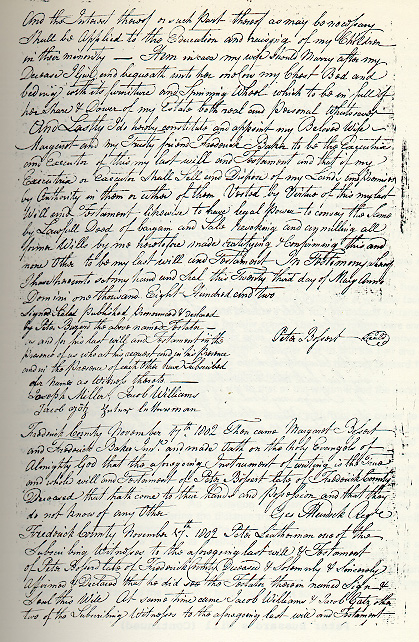 And the Interest thereof or such part thereof as may be necessary
Shall be Applied to the Education and raising of my Children
in there minority — Item in case my wife Should Marry after my
Decease I give and bequeath unto her one of my Chest Bed and
beding with its furniture and Spinning Wheel which to be in full of
her share & Dower of my Estate both real and Personal whatsoever
And Lastly I do hereby constitute and appoint my Beloved Wife
Margaret and my trusty friend Frederick Baker to be the Executrix
and Executor of this my last will and Testament and that if my
Executrix or Executor Shall Sell and Dispose of my Land
by Authority in them or either of them Vested by Virtue of this my last
Will and Testament likewise to have legal power to convey the Same
by Lawfull Deed of bargan and Sale revoking and annulling all
former Wills by me heretofore made ratifying & Confirming this and
none other to be my last will and Testament In Testimony whereof
I have hereunto set my hand and Seal this Twenty third day of May Anno
Domini one thousand Eight Hundred and two
Signed Sealed published pronounced & Declared
by Peter the above named Testator
as and for his last will and testament in the
presence of us who at his request and in his presence
and in the presence of each other have subscribed
our names as witness thereto —
Peter Bossert (Seal)
Joseph Miller, Jacob Williams
Jacob
Frederick County November 17th 1802 Then came Margaret Bossert
and Frederick Baker and made Oath on the Holy Evangels of
Almighty God that the aforegoing Instrument of writing is the True
and whole will and Testament of Peter Bossert late of Frederick County
Deceased that hath come to their hands and possession and that they
do not know of any Other
Geo Murdock Regtr
Frederick County November 17th 1802 Peter one of the
Subscribing Witnesses to the aforegoing last will & Testament
of Peter Bossert late of Frederick County Deceased & Solemnly & Sincerely
affirmed & Declared that he did see the Testator therein named Sign &
Seal this Will At same time came Jacob Williams & Jacob
two of the Subscribing Witnesses to the aforegoing last will and Testament